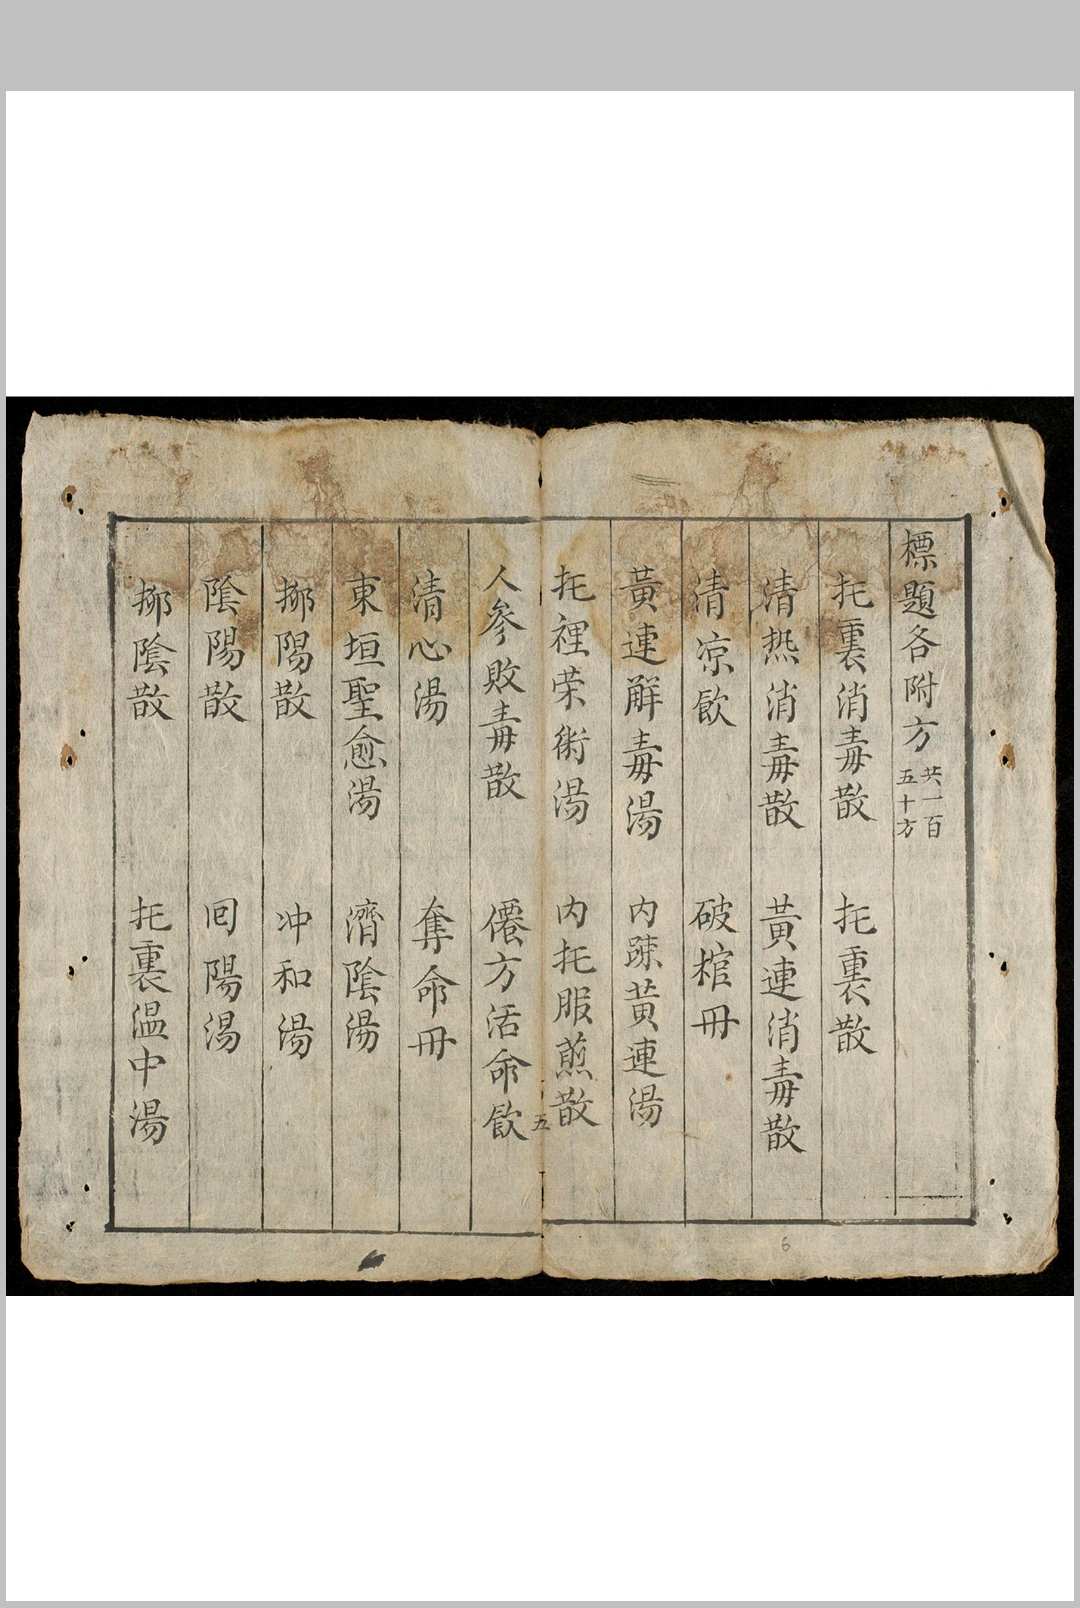 標題各附方 共一百五十方
托裏消毒散 托裏散
清热消毒散 黃連消毒散
清凉飲 破棺冊
黃連觧毒湯 内踈黃連湯
托裡荣術湯 内托服煎散
五
人參敗毒散 僊方活命飲
清心湯 奪命冊
東垣聖愈湯 濟陰湯
抑陽散 冲和湯
陰陽散 囘陽湯
抑陰散 托裏温中湯
6